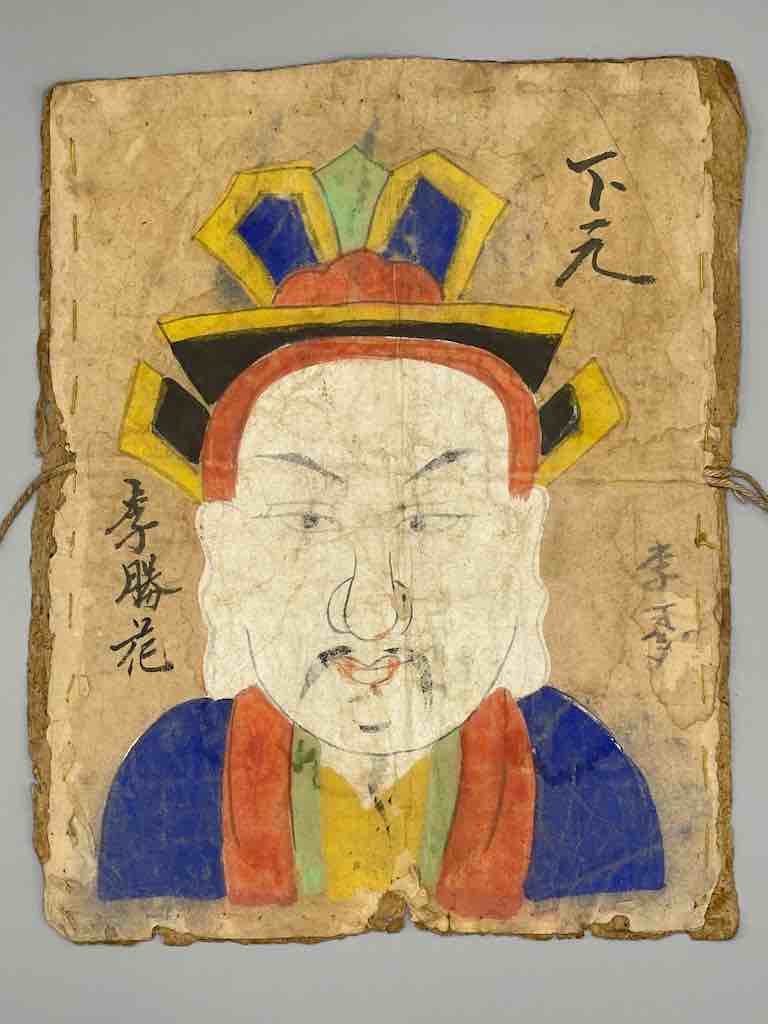 下元
李
李勝花